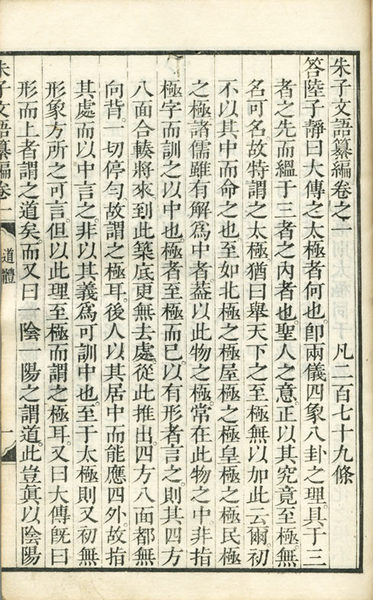 朱子文語纂編卷之一　凡二百七十九條
答陸子靜曰大傳之太極者何也卽兩儀四象八卦之理具于三
者之先而縕于三者之內者也聖人之意正以其究竟至極無
名可名故特謂之太極猶曰舉天下之至極無以加此云爾初
不以其中而命之也至如北極之極屋極之極皇極之極民極
之極諸儒雖有解爲中者葢以此物之極常在此物之中非指
極字而訓之以中也極者至極而已以有形者言之則其四方
八面合輳將來到此築底更無去處從此推出四方八面都無
向背一切停勻故謂之極耳後人以其居中而能應四外故指
其處而以中言之非以其義爲可訓中也至于太極則又初無
形象方所之可言但以此理至極而謂之極耳又曰大傳旣曰
形而上者謂之道矣而又曰一陰一陽之謂道此豈眞以陰陽
朱子文語纂編卷一
道體
一